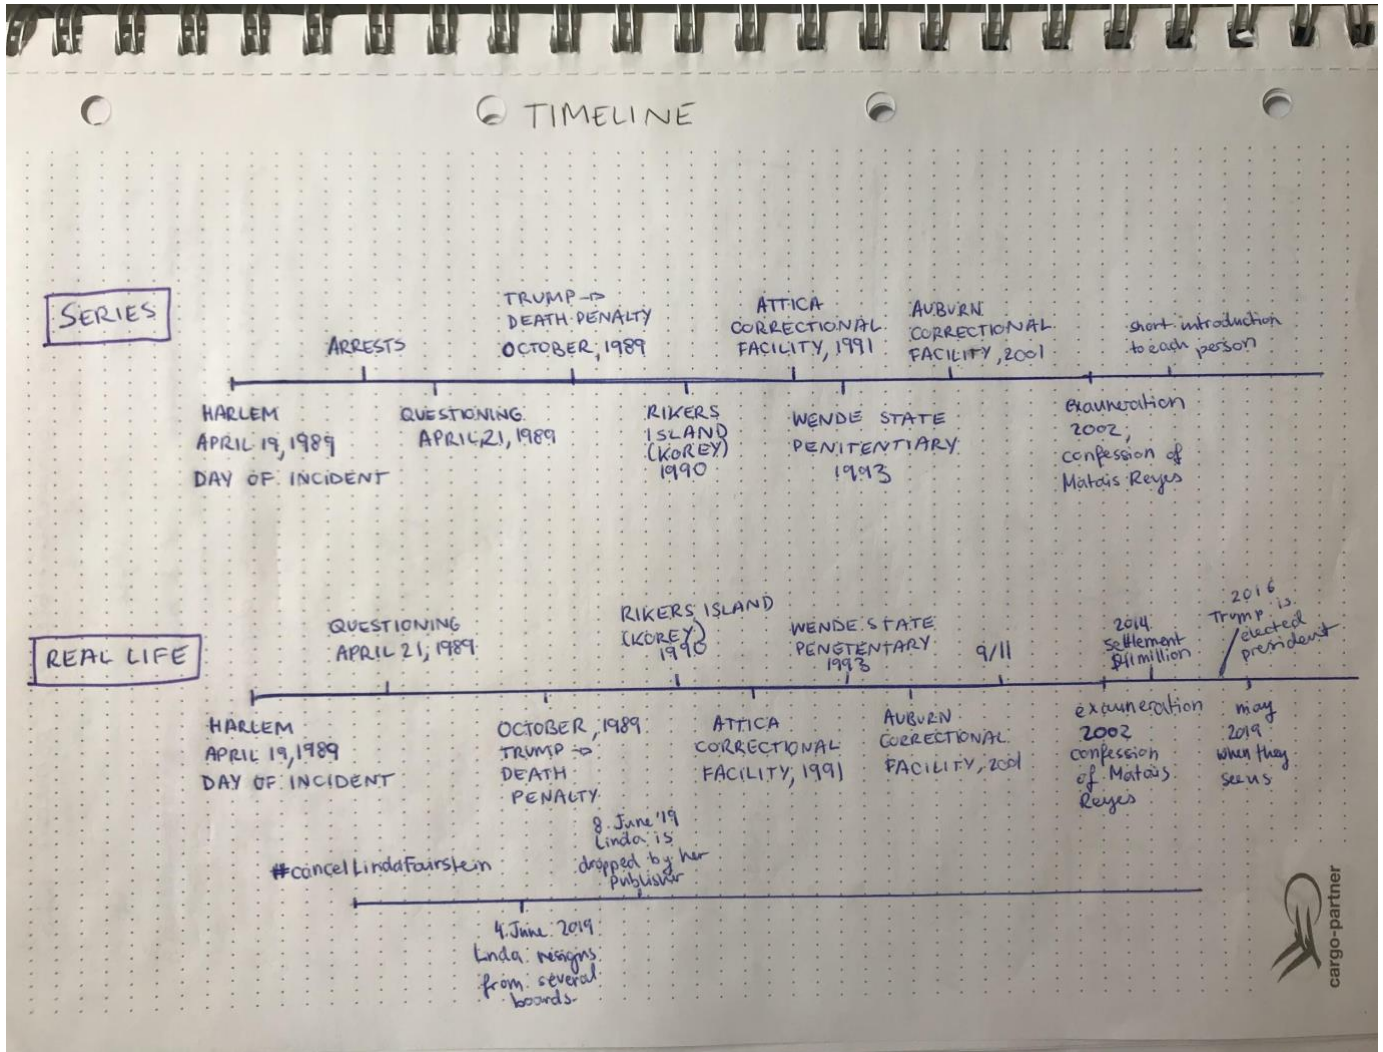 TIMELINE
SERIES
ARRESTS
TRUMP →
DEATH PENALTY
OCTOBER, 1989
ATTICA
CORRECTIONAL
FACILITY, 1991
AUBURN
CORRECTIONAL
FACILITY, 2001
short introduction
to each person
HARLEM
APRIL 19, 1989
DAY OF INCIDENT
QUESTIONING
APRIL 21, 1989
RIKERS
ISLAND
(KOREY)
1990
WENDE STATE
PENITENTIARY
1993
exauneration
2002,
confession of
Matais Reyes
REAL LIFE
QUESTIONING
APRIL 21, 1989
RIKERS ISLAND
(KOREY)
1990
WENDE STATE
PENETENTARY
1993
9/11
2014
Settlement
$41 million
2016
Trump is
elected
president
HARLEM
APRIL 19, 1989
DAY OF INCIDENT
OCTOBER, 1989
TRUMP →
DEATH
PENALTY
ATTICA
CORRECTIONAL
FACILITY, 1991
AUBURN
CORRECTIONAL
FACILITY, 2001
exauneration
2002
confession
of Matais
Reyes
may
2019
when they
see us
#cancelLindaFairstein
8. June '19
Linda is
dropped by her
Publisher
4. June 2019
Linda resigns
from several
boards.
cargo-partner